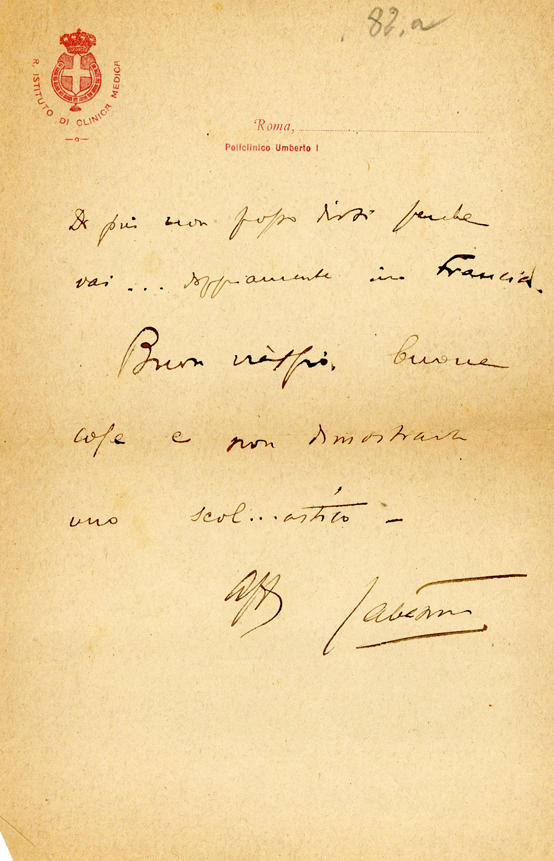 82.a
R. ISTITUTO DI CLINICA MEDICA
Roma,
Policlinico Umberto I
Di più non posso dirti perche
vai ... doppiamente in Francia.
Buon viaggio, buone
cose e non dimostrarti
uno scol...astico -
aff